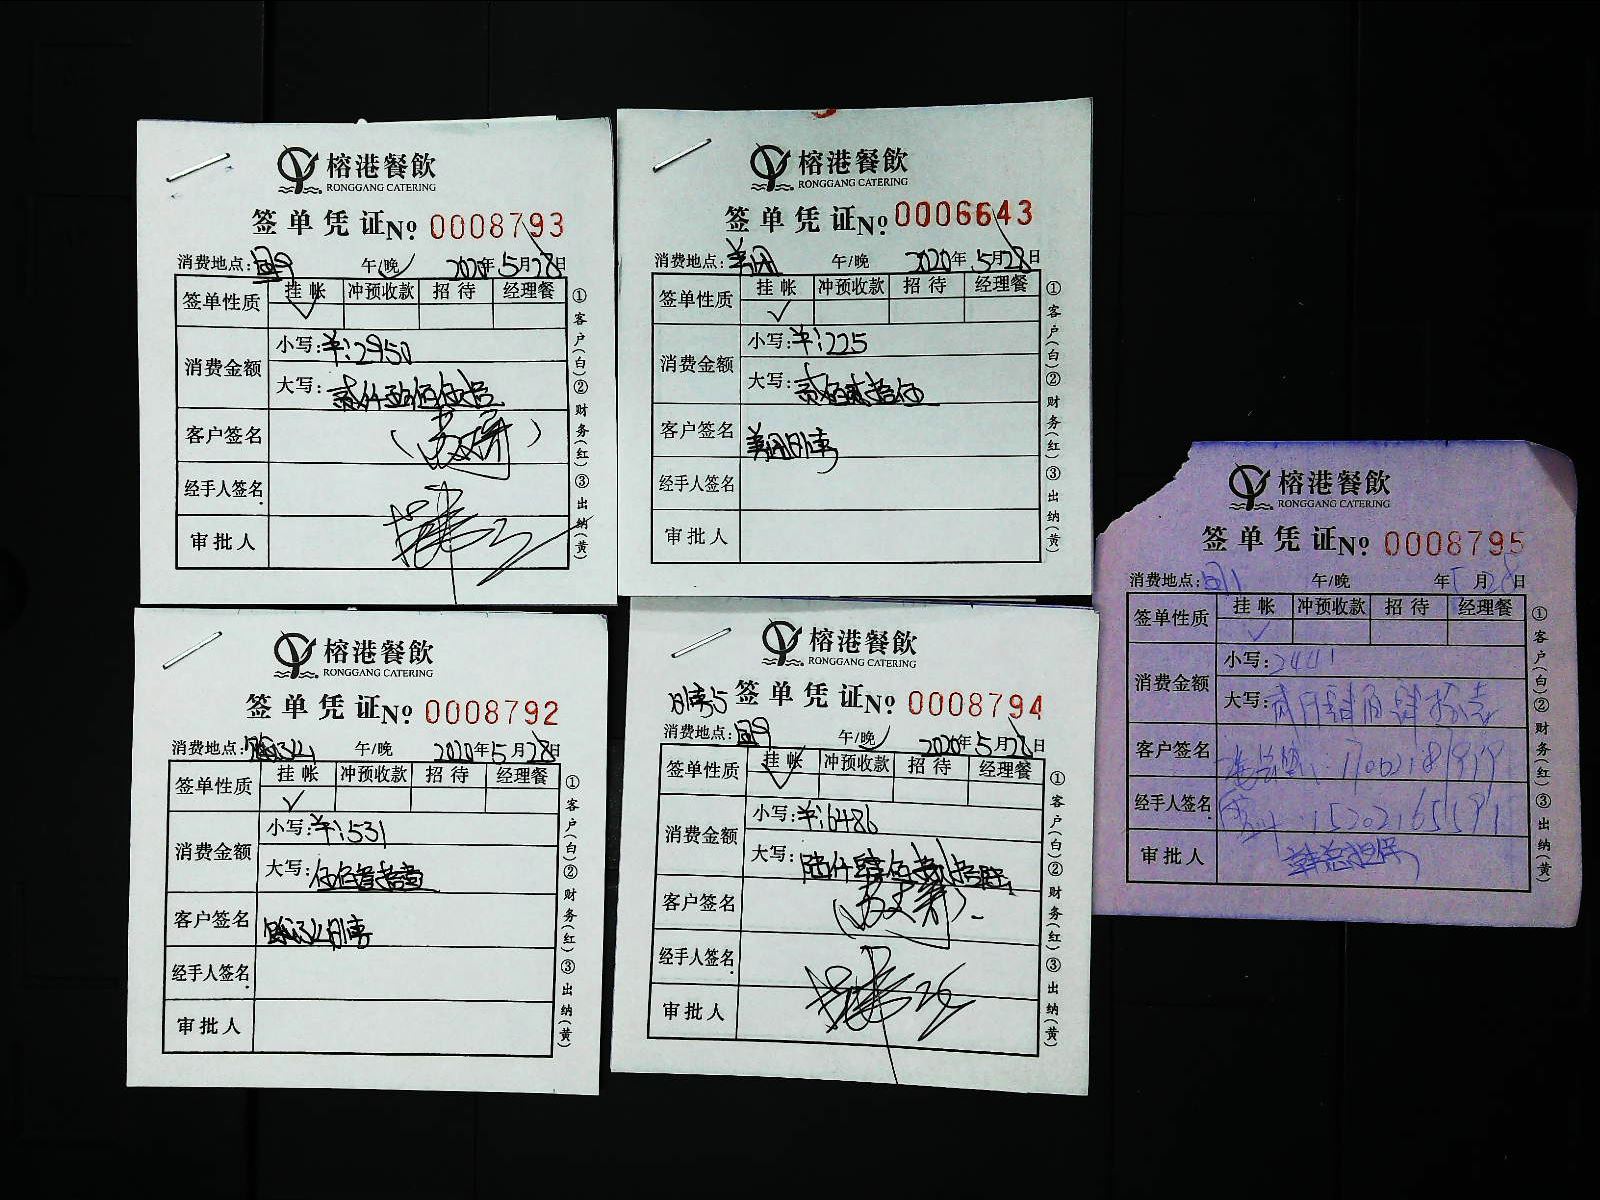 榕港餐飲
RONGGANG CATERING
签单凭证No 0008793
消费地点: 午/晚 2020年5月28日
签单性质 挂帐 冲预收款 招待 经理餐
消费金额 小写:¥:2950
大写:贰仟玖佰伍拾
客户签名
经手人签名
审批人
①客户(白)②财务(红)③出纳(黄)
榕港餐飲
RONGGANG CATERING
签单凭证No 0006643
消费地点: 午/晚 2020年5月28日
签单性质 挂帐 冲预收款 招待 经理餐
消费金额 小写:¥:225
大写:贰佰贰拾伍
客户签名
经手人签名
审批人
①客户(白)②财务(红)③出纳(黄)
榕港餐飲
RONGGANG CATERING
签单凭证No 0008792
消费地点: 午/晚 2020年5月28日
签单性质 挂帐 冲预收款 招待 经理餐
消费金额 小写:¥:531
大写:伍佰叁拾壹
客户签名
经手人签名
审批人
①客户(白)②财务(红)③出纳(黄)
榕港餐飲
RONGGANG CATERING
签单凭证No 0008794
消费地点: 午/晚 2020年5月28日
签单性质 挂帐 冲预收款 招待 经理餐
消费金额 小写:¥:6486
大写:陆仟肆佰捌拾陆
客户签名
经手人签名
审批人
①客户(白)②财务(红)③出纳(黄)
榕港餐飲
RONGGANG CATERING
签单凭证No 0008795
消费地点: 午/晚 年5月28日
签单性质 挂帐 冲预收款 招待 经理餐
消费金额 小写:2441
大写:贰仟肆佰肆拾壹
客户签名
经手人签名
审批人
①客户(白)②财务(红)③出纳(黄)